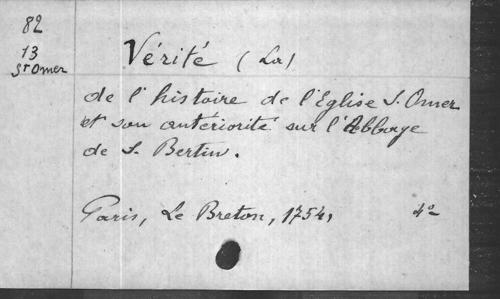 82
13
St Omer
Vérité (La)
de l'histoire de l'Eglise S. Omer
et son antériorité sur l'Abbaye
de S. Bertin.
Paris, Le Breton, 1754, 4°